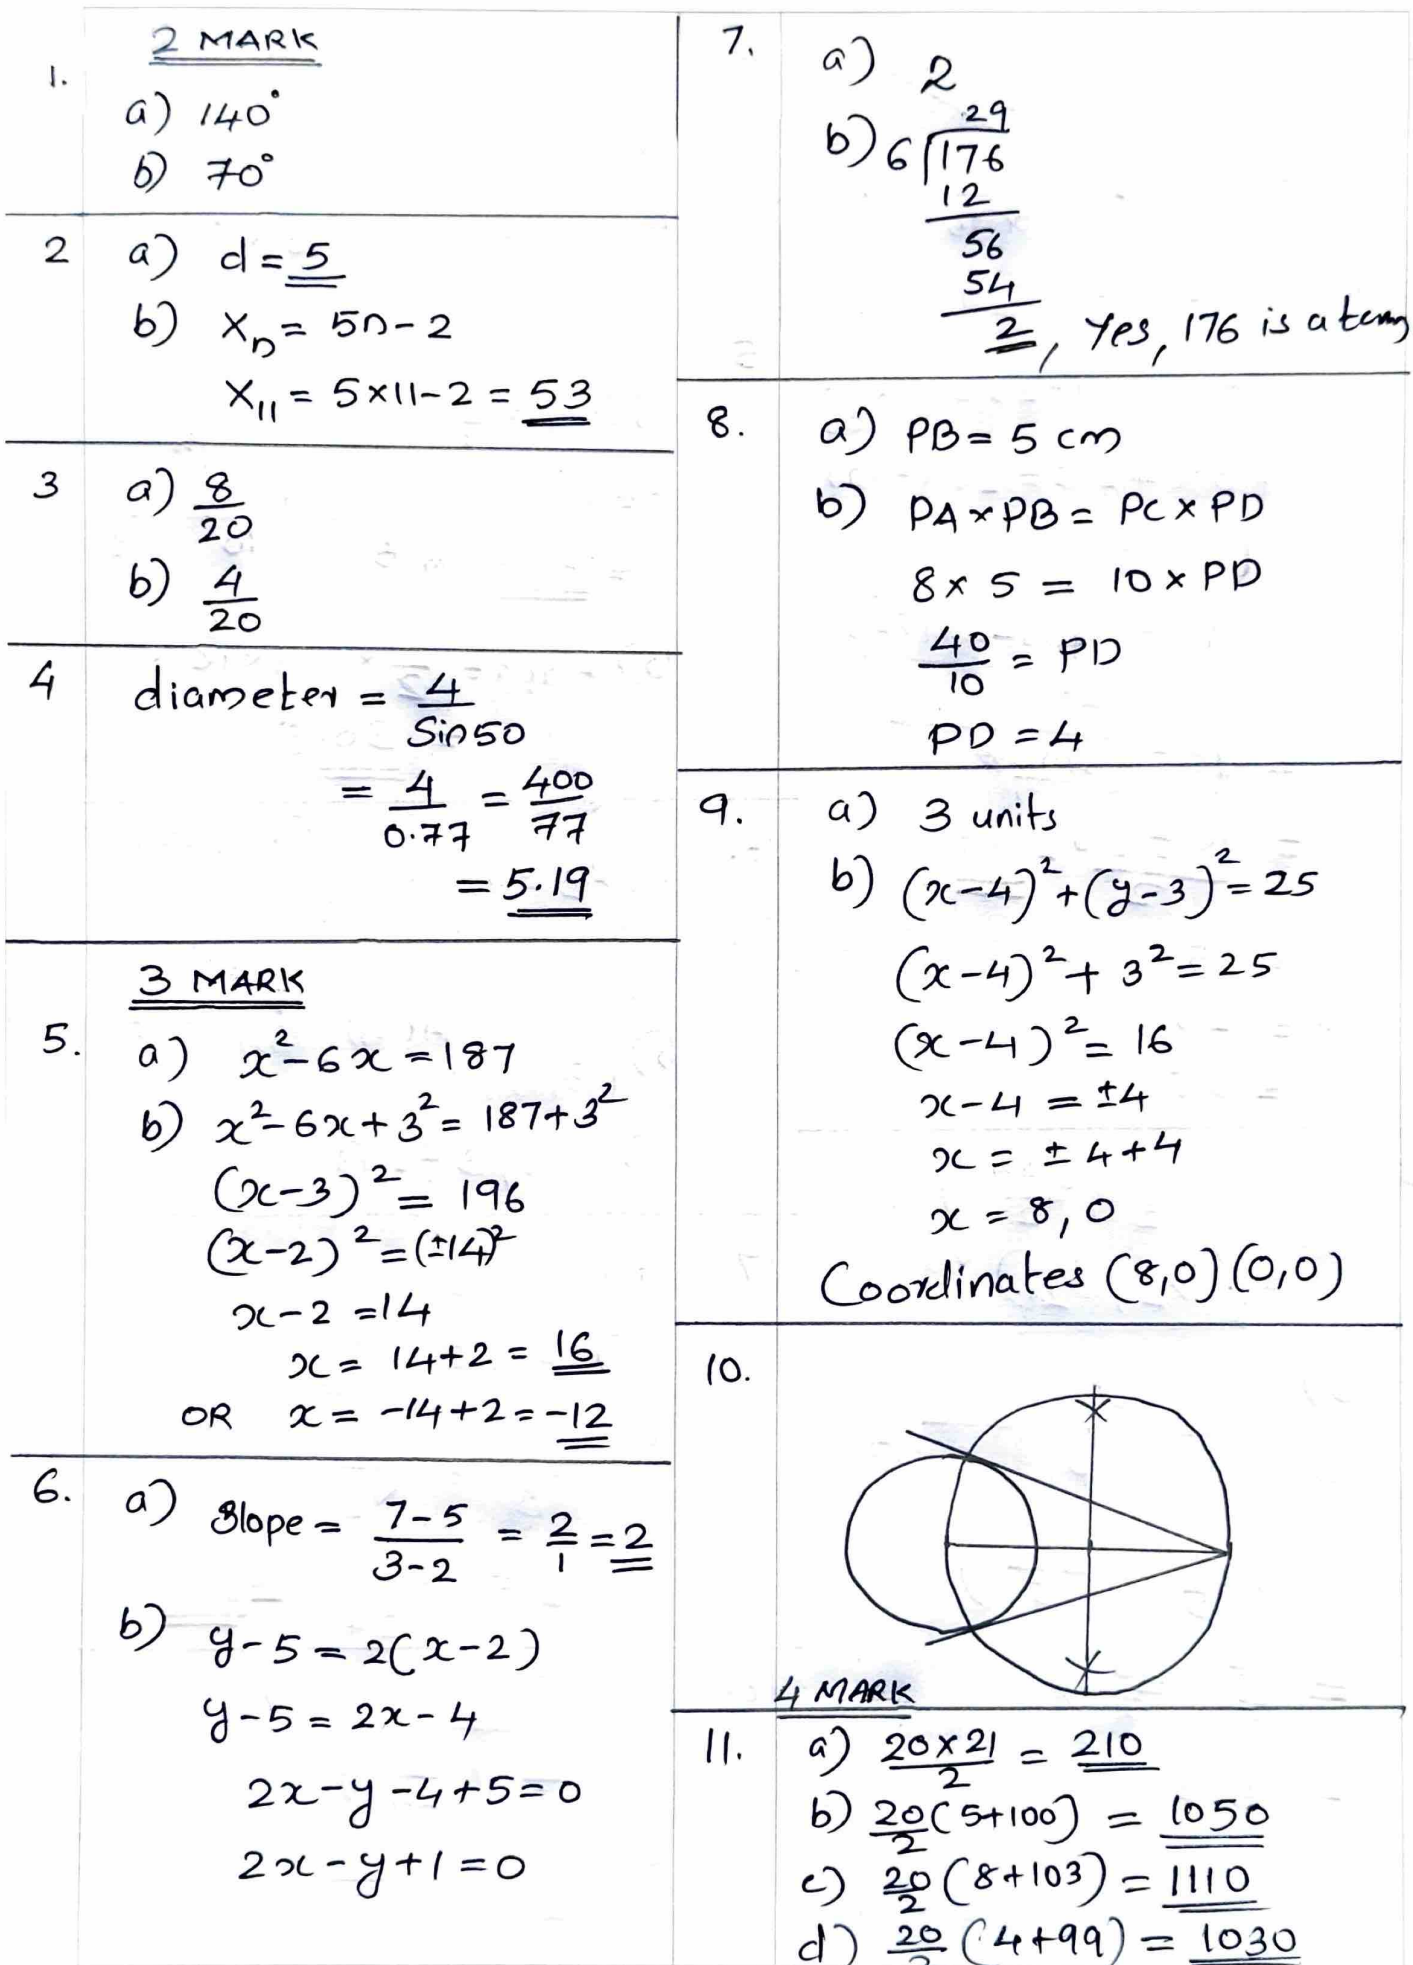 2 MARK
1.
a) 140°
b) 70°
2 a) d = 5
b) Xn = 5n - 2
X11 = 5×11-2 = 53
3 a) 8/20
b) 4/20
4 diameter = 4/Sin50
= 4/0.77 = 400/77
= 5.19
3 MARK
5. a) x² - 6x = 187
b) x² - 6x + 3² = 187 + 3²
(x-3)² = 196
(x-2)² = (±14)²
x - 2 = 14
x = 14+2 = 16
OR x = -14+2 = -12
6. a) Slope = 7-5/3-2 = 2/1 = 2
b) y-5 = 2(x-2)
y-5 = 2x-4
2x-y-4+5=0
2x-y+1=0
7. a) 2
b) 29
6)176
12
56
54
2, Yes, 176 is a term
8. a) PB = 5 cm
b) PA × PB = PC × PD
8 × 5 = 10 × PD
40/10 = PD
PD = 4
9. a) 3 units
b) (x-4)² + (y-3)² = 25
(x-4)² + 3² = 25
(x-4)² = 16
x-4 = ±4
x = ±4+4
x = 8, 0
Coordinates (8,0) (0,0)
10.
4 MARK
11. a) 20×21/2 = 210
b) 20/2 (5+100) = 1050
c) 20/2 (8+103) = 1110
d) 20/2 (4+99) = 1030